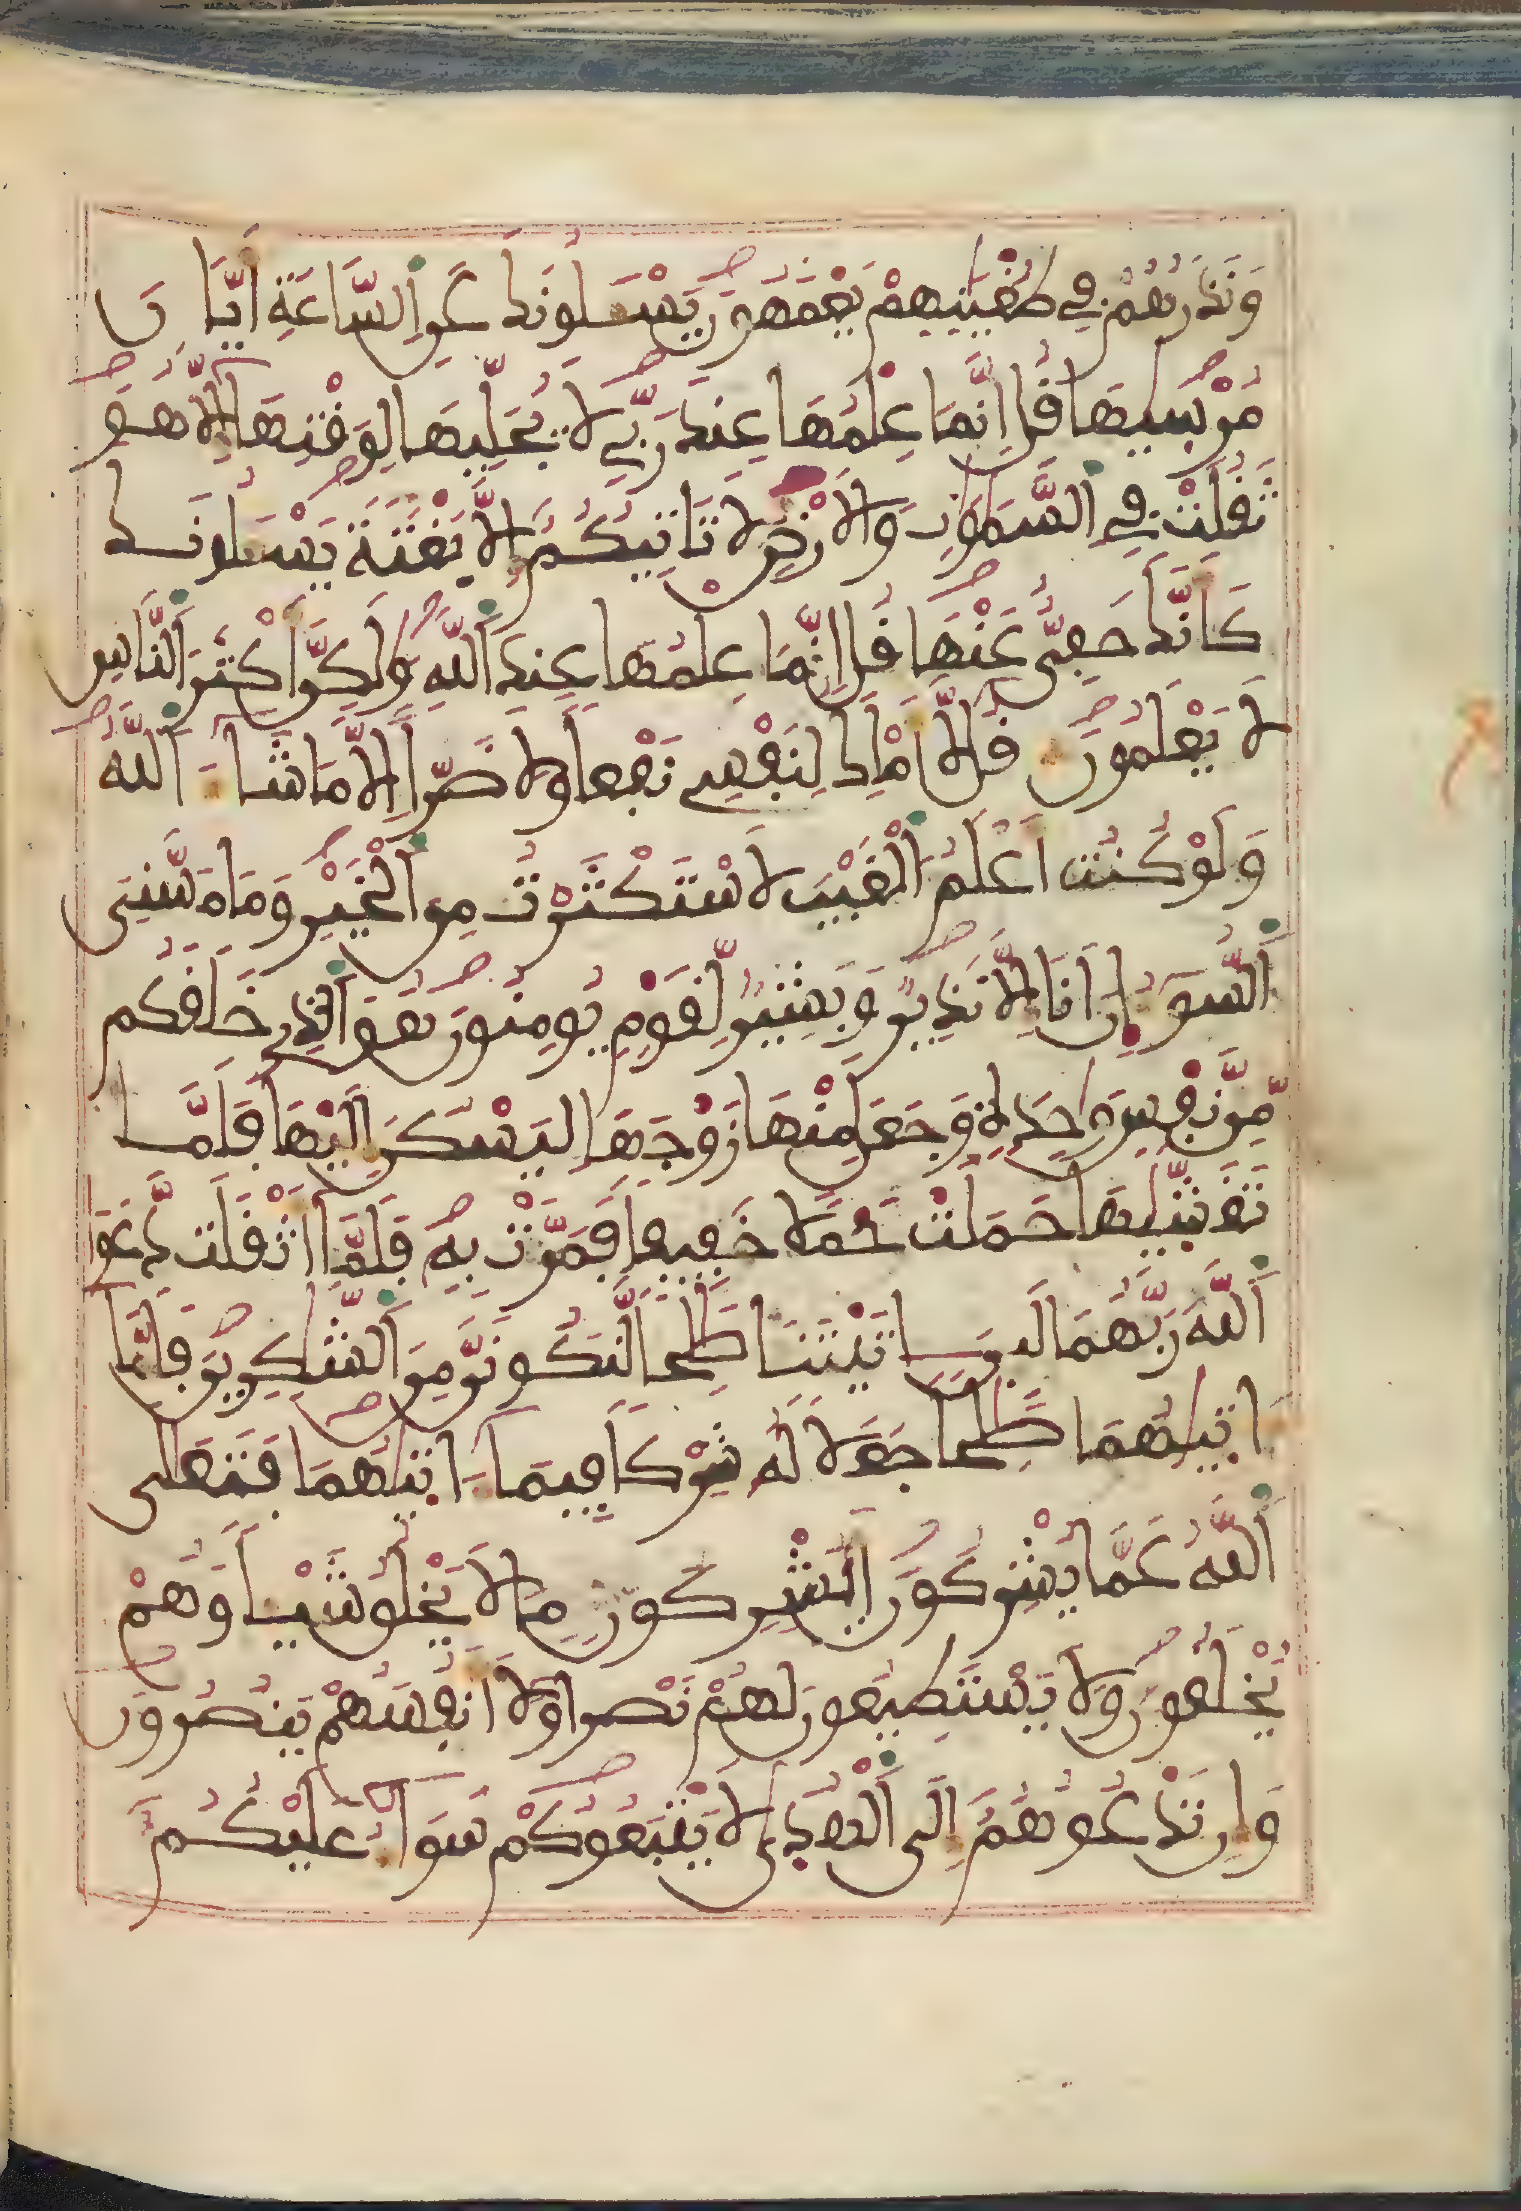 وَنَذَرُهُمْ فِي طُغْيَٰنِهِمْ يَعْمَهُونَ يَسْـَٔلُونَكَ عَنِ اِ۬لسَّاعَةِ أَيَّانَ
مُرْسَيٰهَا قُلِ اِنَّمَا عِلْمُهَا عِندَ رَبِّي لَا يُجَلِّيهَا لِوَقْتِهَآ إِلَّا هُوَ
ثَقُلَتْ فِي اِ۬لسَّمَٰوَٰتِ وَالَارْضِ لَا تَاتِيكُمُۥٓ إِلَّا بَغْتَةً يَسْـَٔلُونَكَ
كَأَنَّكَ حَفِيٌّ عَنْهَا قُلِ اِنَّمَا عِلْمُهَا عِندَ اَ۬للَّهِ وَلَٰكِنَّ أَكْثَرَ اَ۬لنَّاسِ
لَا يَعْلَمُونَ قُل لَّآ أَمْلِكُ لِنَفْسِي نَفْعاً وَلَا ضَرّاً اِلَّا مَا شَآءَ اَ۬للَّهُ
وَلَوْ كُنتُ أَعْلَمُ اُ۬لْغَيْبَ لَاسْتَكْثَرْتُ مِنَ اَ۬لْخَيْرِ وَمَا مَسَّنِيَ
اَ۬لسُّوٓءُ اِنَ اَنَا إِلَّا نَذِيرٌ وَبَشِيرٌ لِّقَوْمٍ يُومِنُونَ هُوَ اَ۬لذِي خَلَقَكُم
مِّن نَّفْسٍ وَٰحِدَةٍ وَجَعَلَ مِنْهَا زَوْجَهَا لِيَسْكُنَ إِلَيْهَا فَلَمَّا
تَغَشَّيٰهَا حَمَلَتْ حَمْلاً خَفِيفاً فَمَرَّتْ بِهِۦ فَلَمَّآ أَثْقَلَت دَّعَوَا
اَ۬للَّهَ رَبَّهُمَا لَئِنَ اٰتَيْتَنَا صَٰلِحاً لَّنَكُونَنَّ مِنَ اَ۬لشَّٰكِرِينَ فَلَمَّآ
ءَاتَيٰهُمَا صَٰلِحاً جَعَلَا لَهُۥ شِرْكاً فِيمَآ ءَاتَيٰهُمَا فَتَعَٰلَى
اَ۬للَّهُ عَمَّا يُشْرِكُونَ أَيُشْرِكُونَ مَا لَا يَخْلُقُ شَيْـٔاً وَهُمْ
يُخْلَقُونَ وَلَا يَسْتَطِيعُونَ لَهُمْ نَصْراً وَلَآ أَنفُسَهُمْ يَنصُرُونَ
وَإِن تَدْعُوهُمُۥٓ إِلَى اَ۬لْهُدَىٰ لَا يَتْبَعُوكُمْ سَوَآءٌ عَلَيْكُمُۥٓ